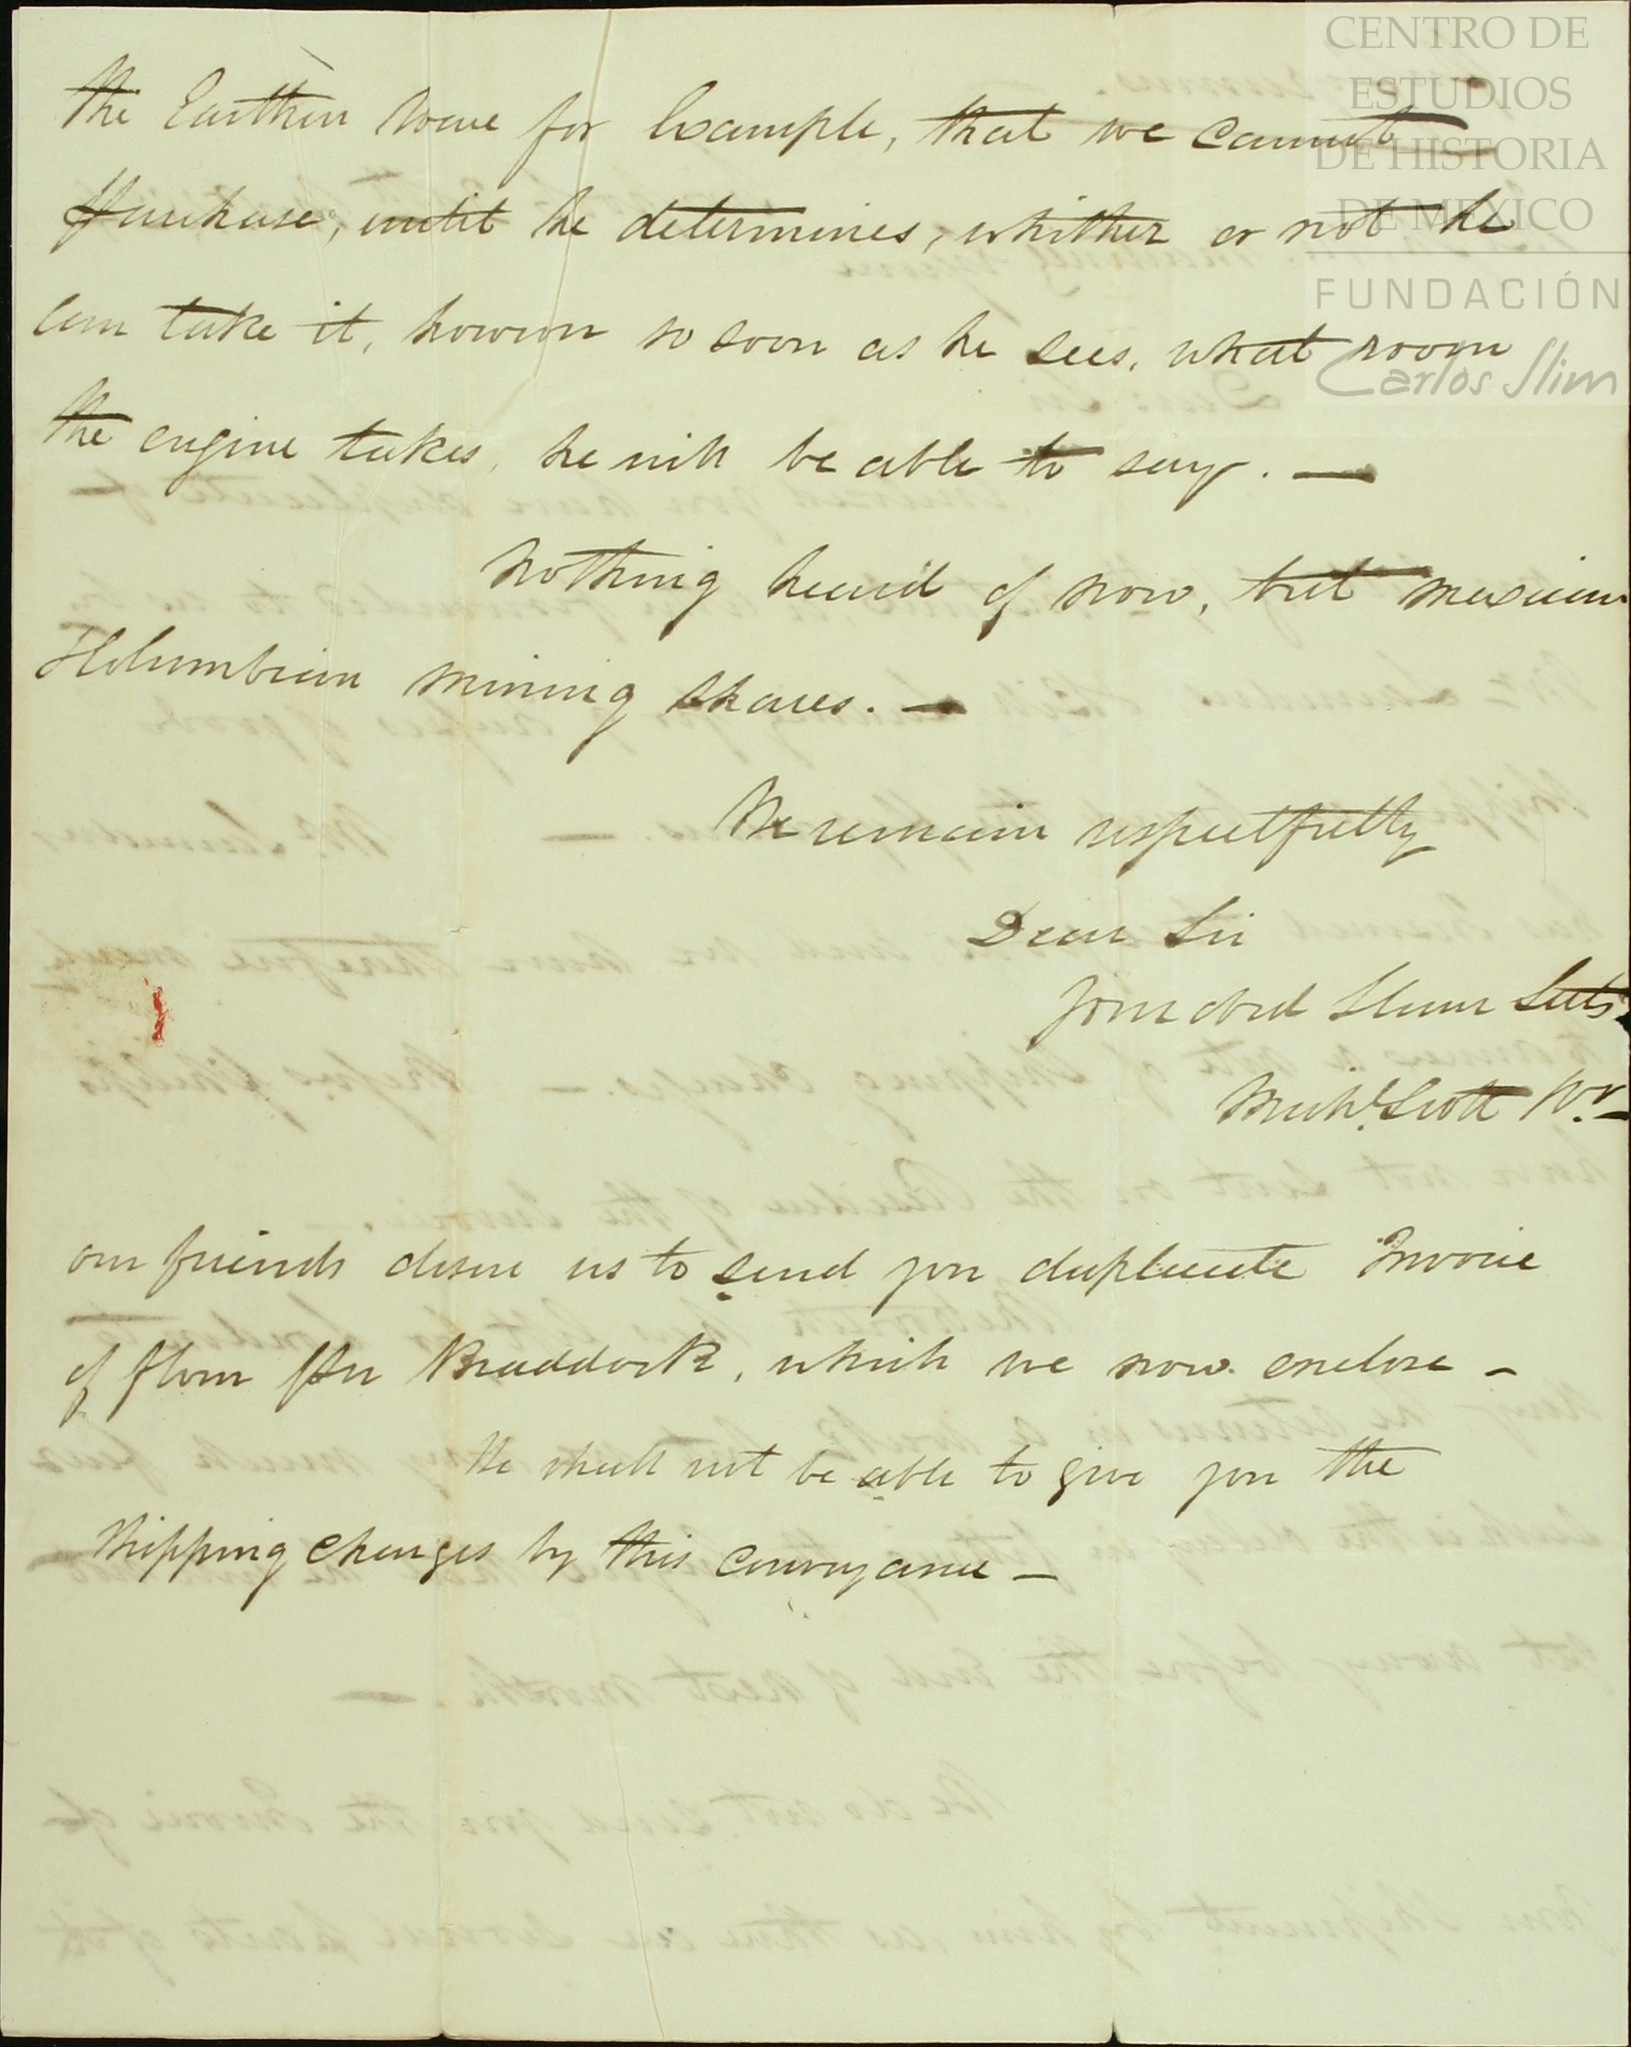 CENTRO DE
ESTUDIOS
DE HISTORIA
DE MÉXICO
FUNDACIÓN
Carlos Slim
the Earthen Ware for Example, that we cannot
Purchase, until he determines, whither or not he
can take it, however so soon as he sees, what room
the engine takes, he will be able to say. —
Nothing heard of now, but Mexican
& Columbian mining shares. —
We remain respectfully
Dear Sir
Your obed Hum Sets
Mich.l Scott
our friends desire us to send you duplicate Invoice
of flour Per Braddock, which we now enclose –
We shall not be able to give you the
Shipping Charges by this Conveyance –